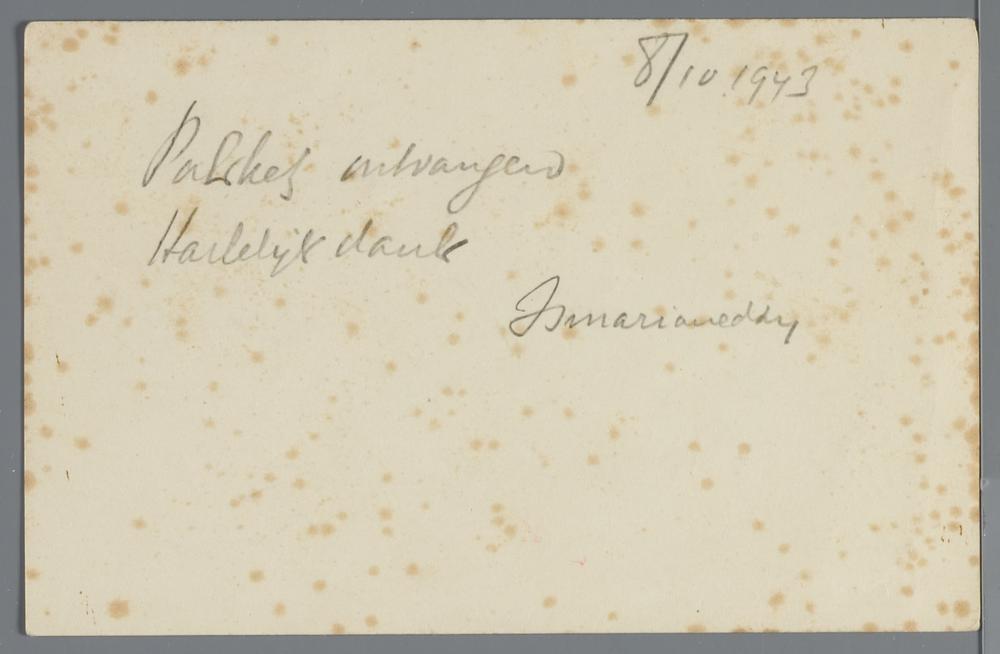 8/10 1943
Pakket ontvangen
Hartelijk dank